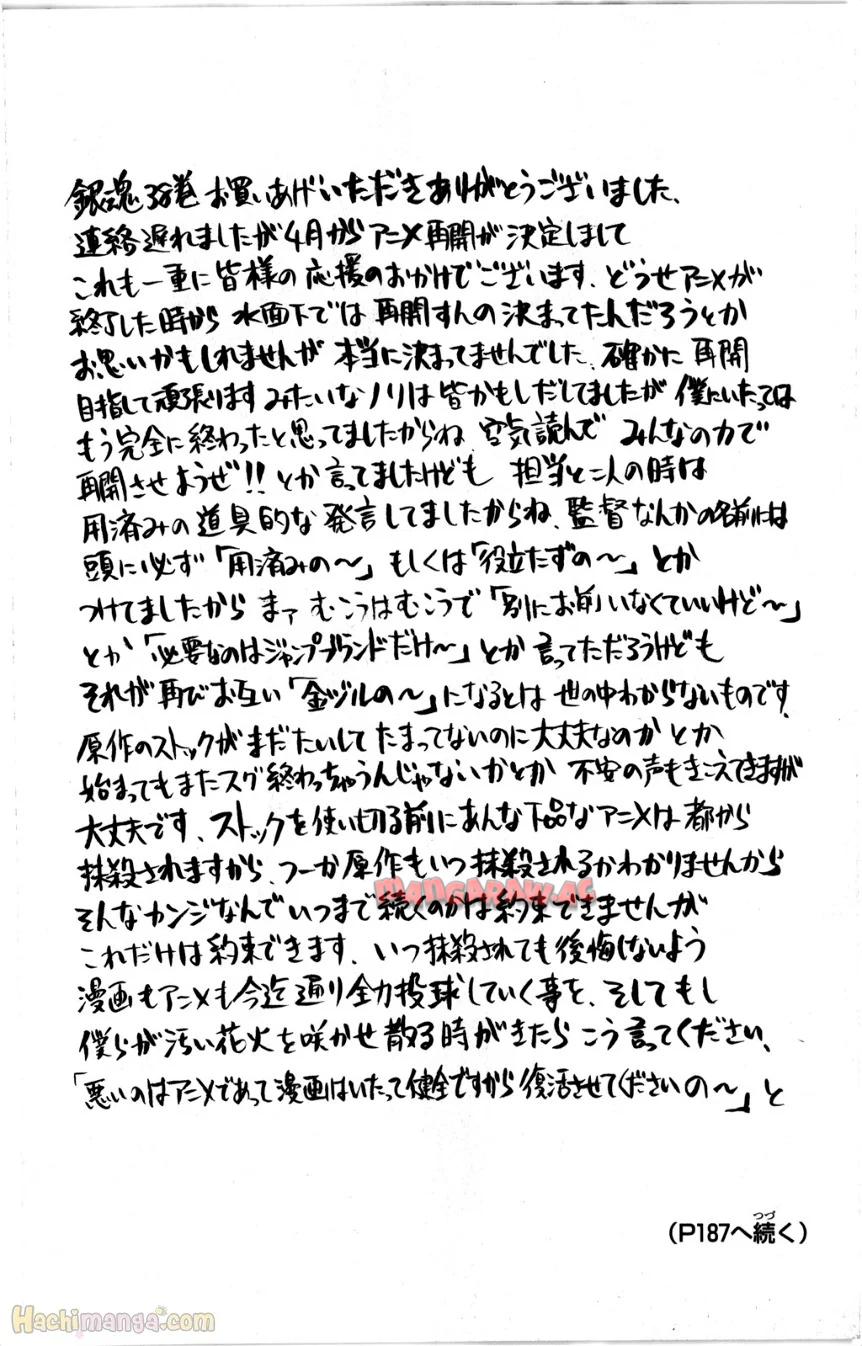 銀魂38巻お買いあげいただきありがとうございました、
連絡遅れましたが4月からアニメ再開が決定しまして
これも一重に皆様の応援のおかげでございます、どうせアニメが
終了した時から水面下では再開すんの決まってたんだろうとか
お思いかもしれませんが本当に決まってませんでした、確かに再開
目指して頑張りますみたいなノリは皆かもしだしてましたが僕にいたっては
もう完全に終わったと思ってましたからね、空気読んでみんなの力で
再開させようぜ!!とか言ってましたけども担当と二人の時は
用済みの道具的な発言してましたからね、監督なんかの名前には
頭に必ず「用済みの〜」もしくは「役立たずの〜」とか
つけてましたからまァむこうはむこうで「別にお前いなくていいけど〜」
とか「必要なのはジャンプブランドだけ〜」とか言ってただろうけども
それが再びお互い「金ヅルの〜」になるとは世の中わからないものです、
原作のストックがまだたいしてたまってないのに大丈夫なのかとか
始まってもまたスグ終わっちゃうんじゃないかとか不安の声もきこえてきますが
大丈夫です、ストックを使い切る前にあんな下品なアニメは都から
抹殺されますから、つーか原作もいつ抹殺されるかわかりませんから
そんなカンジなんでいつまで続くのかは約束できませんが
これだけは約束できます、いつ抹殺されても後悔しないよう
漫画もアニメも今迄通り全力投球していく事を、そしてもし
僕らが汚い花火を咲かせ散る時がきたらこう言ってください、
「悪いのはアニメであって漫画はいたって健全ですから復活させてくださいの〜」と
MANGARAW.AC
(P187へ続く)
つづ
Hachimanga.com